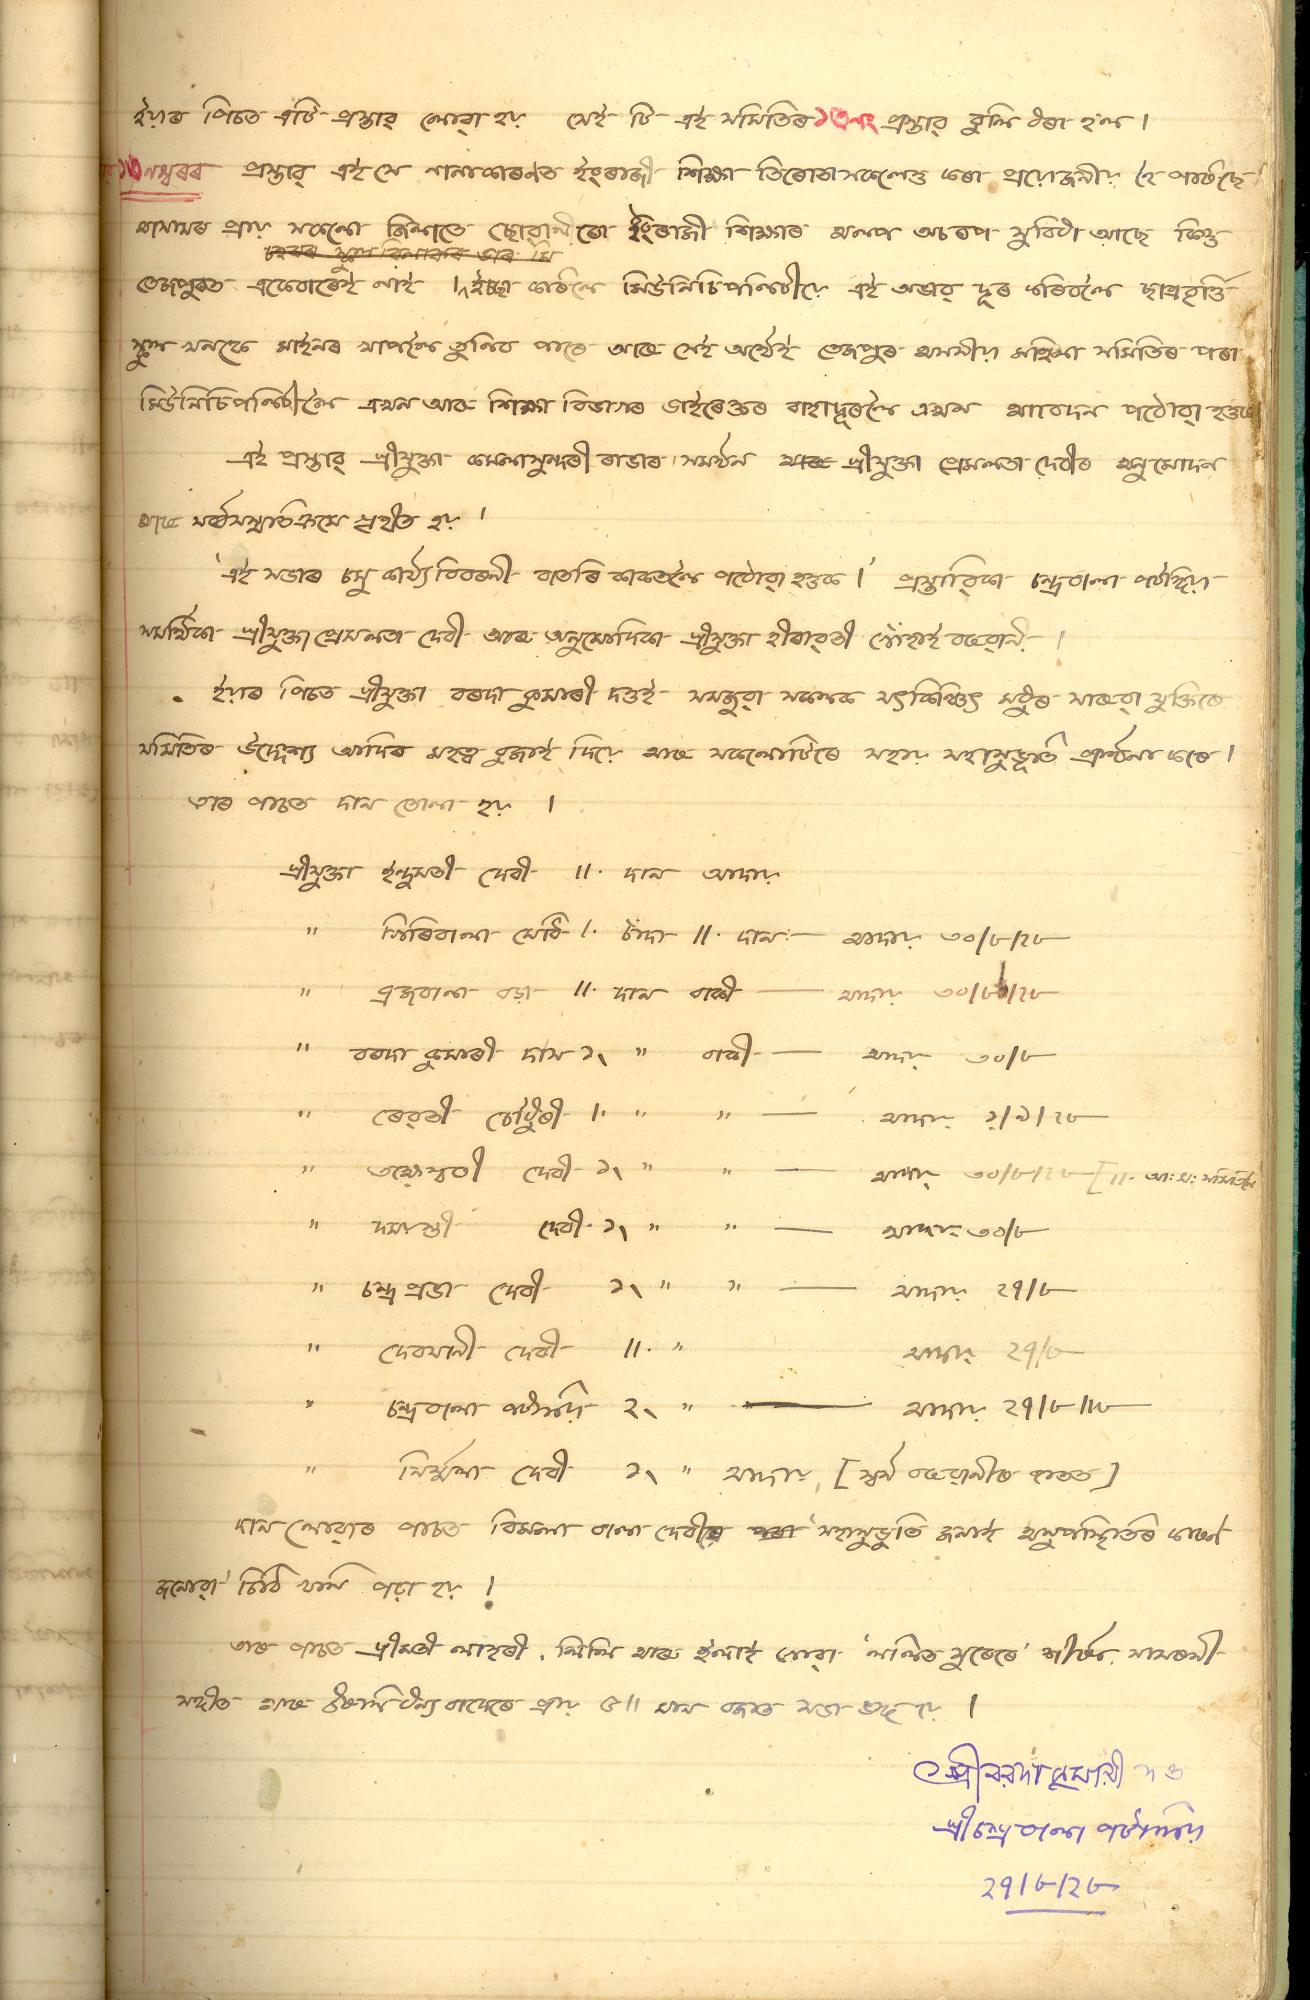 ইয়াৰ পিচত এটি প্ৰস্তাৱ লোৱা হয় সেই টি এই সমিতিৰ ১৩নং প্ৰস্তাৱ বুলি ধৰা হল ।
১৩নম্বৰৰ প্ৰস্তাৱ এই যে নানা কাৰণত ইংৰাজী শিক্ষা তিৰোতা সকলেও কৰা প্ৰয়োজনীয় হৈ পৰিছে
আসামৰ প্ৰায় সকলো জিলাতে ছোৱালীৰো ইংৰাজী শিক্ষাৰ অলপ অচৰপ সুবিধা আছে কিন্তু
তেজপুৰত একেবাৰেই নাই । ইচ্ছা কৰিলে মিউনিচিপলিটীয়ে এই অভাৱ দূৰ কৰিবলৈ ছাত্ৰবৃত্তি
স্কুল খনকে মাইনৰ মাপলৈ তুলিব পাৰে আৰু সেই অৰ্থেই তেজপুৰ অসমীয়া মহিলা সমিতিৰ পৰা
মিউনিচিপলিটীলৈ এখন আৰু শিক্ষা বিভাগৰ ডাইৰেক্টৰ বাহাদূৰলৈ এখন আবেদন পঠোৱা হওক
এই প্ৰস্তাৱ শ্ৰীযুক্তা কমলাসুন্দৰী ৰাভাৰ সমৰ্থন আৰু শ্ৰীযুক্তা প্ৰেমলতা দেবীৰ অনুমোদন
আৰু সৰ্ব্বসম্মতিক্ৰমে গৃহীত হয় ।
এই সভাৰ চমু কাৰ্য্য বিবৰনী বাতৰি কাকতলৈ পঠোৱা হওক । প্ৰস্তাৱিকা চন্দ্ৰবালা পাটঙ্গিয়া
সমৰ্থিকা শ্ৰীযুক্তা প্ৰেমলতা দেবী আৰু অনুমোদিকা শ্ৰীযুক্তা হীৰাৱতী গোঁহাই বৰুৱানী ।
ইয়াৰ পিচত শ্ৰীযুক্তা বৰদা কুমাৰী দত্তই সমজুৱা সকলক যৎকিঞ্চিৎ মধুৰ সাৰুৱা যুক্তিৰে
সমিতিৰ উদ্দেশ্য আদিৰ মহত্ব বুজাই দিয়ে আৰু সকলোটিৰে সহায় সহানুভূতি প্ৰাৰ্থনা কৰে ।
তাৰ পাচত দান তোলা হয় ।
শ্ৰীযুক্তা ইন্দুমতী দেবী ॥· দান আদায়
" গিৰিবালা মেধি ।· চাঁদা ॥· দান — আদায় ৩০/৮/২৮
" ব্ৰজবালা বড়া ॥· দান বাকী — আদায় ৩০/৮/২৮
" বৰদা কুমাৰী দাস ১৲ " বাকী — আদায় ৩০/৮
" ৰেৱতী চৌধুৰী ।· " " — আদায় ২/৯/২৮
" দেবী ১৲ " " — আদায় ৩০/৮/২৮ [॥· আঃ মঃ সমিতিলৈ
" দময়ন্তী দেবী ১৲ " " — আদায় ৩০/৮
" চন্দ্ৰ প্ৰভা দেবী ১৲ " " — আদায় ২৭/৮
" দেবযানী দেবী ॥· " আদায় ২৭/৮
" চন্দ্ৰবালা পাটঙ্গিয়া ২৲ " — আদায় ২৭/৮/২৮
" নিৰ্ম্মলা দেবী ১৲ " আদায় [ স্বৰ্ণ বৰুৱানীৰ হাতত ]
দান লোৱাৰ পাচত বিমলা বালা দেবীয়ে সহানুভূতি জনাই অনুপস্থিতিৰ কাৰণ
জনোৱা চিঠি খনি পঢ়া হয় ।
তাৰ পাচত শ্ৰীমতী লাহৰী, লিলি আৰু ইলাই গোৱা 'ললিত সুৰেৰে' কীৰ্ত্তন, সামৰনী
সঙ্গীত আৰু ধন্যবাদেৰে প্ৰায় ৫॥ মান বজাত সভা ভঙ্গ হয় ।
শ্ৰীবৰদা কুমাৰী দত্ত
শ্ৰীচন্দ্ৰবালা পাটঙ্গিয়া
২৭/৮/২৮